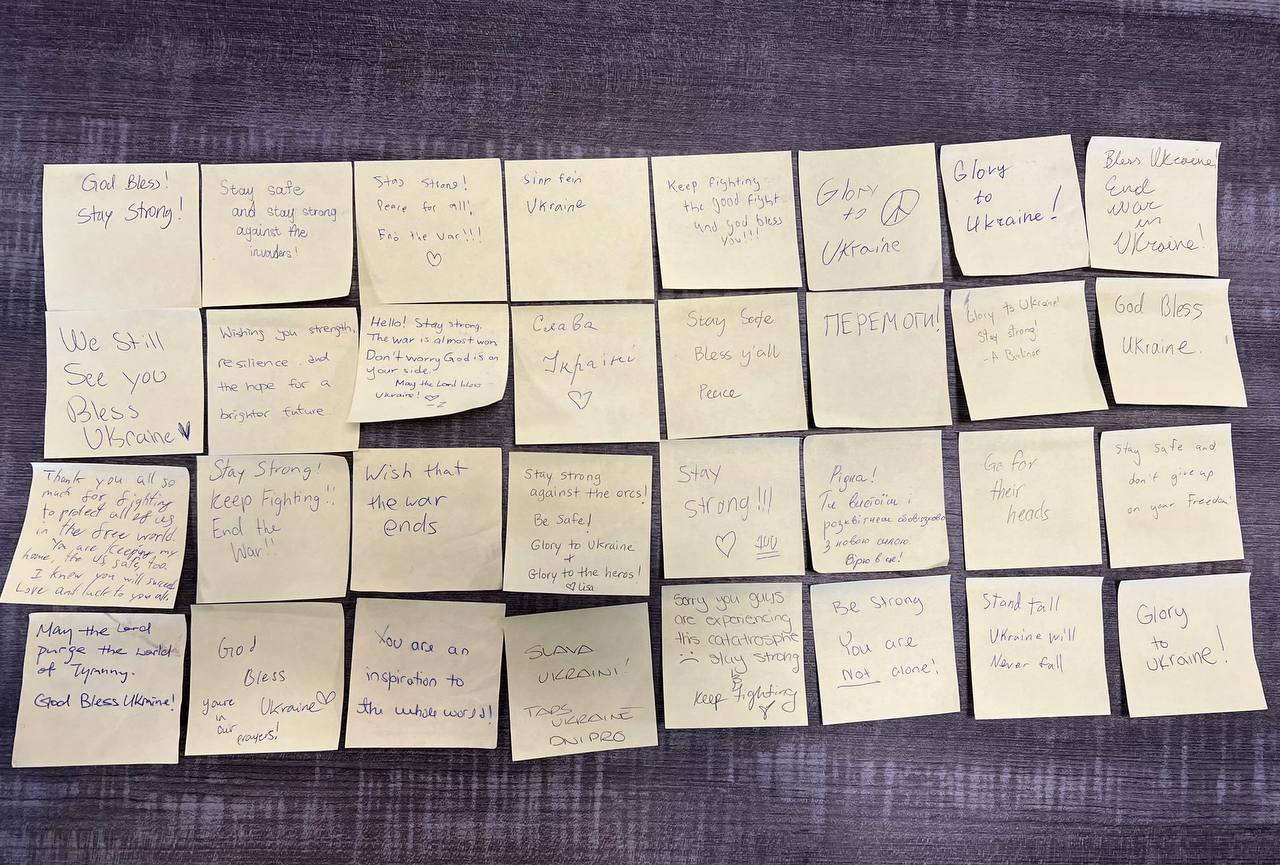 God Bless!
Stay strong!
Stay safe
and stay strong
against the
invaders!
Stay strong!
Peace for all!
End the War!!!
Sinn fein
Ukraine
Keep fighting
the good fight
and god bless
you!!!
Glory
to
Ukraine
Glory
to
Ukraine!
Bless Ukraine!
End
war
in
Ukraine!
We Still
See you
Bless
Ukraine
Wishing you strength,
resilience and
the hope for a
brighter future.
Hello! Stay strong.
The war is almost won
Don't worry God is on
your side.
May the Lord bless
Ukraine!
-Z
Слава
Україні
Stay Safe
Bless y'all
Peace
ПЕРЕМОГИ!
Glory to Ukraine!
Stay strong!
- A
God Bless
Ukraine.
Thank you all so
much for fighting
to protect all of us
in the free world.
You are keeping my
home, the US safe, too.
I know you will succeed
Love and luck to you all.
Stay Strong!
Keep Fighting!!
End the
War!!
Wish that
the war
ends
Stay strong
against the orcs!
Be Safe!
Glory to Ukraine
+
Glory to the heros!
Lisa
Stay
strong!!!
100
Рідна!
Ти вистоїш і
розквітнеш обовʼязково
з новою силою.
Вірю в це!
Go for
their
heads
Stay safe and
don't give up
on your freedom!
May the Lord
purge the world
of Tyranny.
God Bless Ukraine!
God
Bless
Ukraine
youre
in
our
prayers!
You are an
inspiration to
the whole world!
SLAVA
UKRAINI!
TAPS UKRAINE
DNIPRO
Sorry you guys
are experiencing
this catatrosphe
stay strong
&
keep fighting
Be Strong
You are
Not alone!
Stand tall
Ukraine will
Never fall
Glory
to
Ukraine!